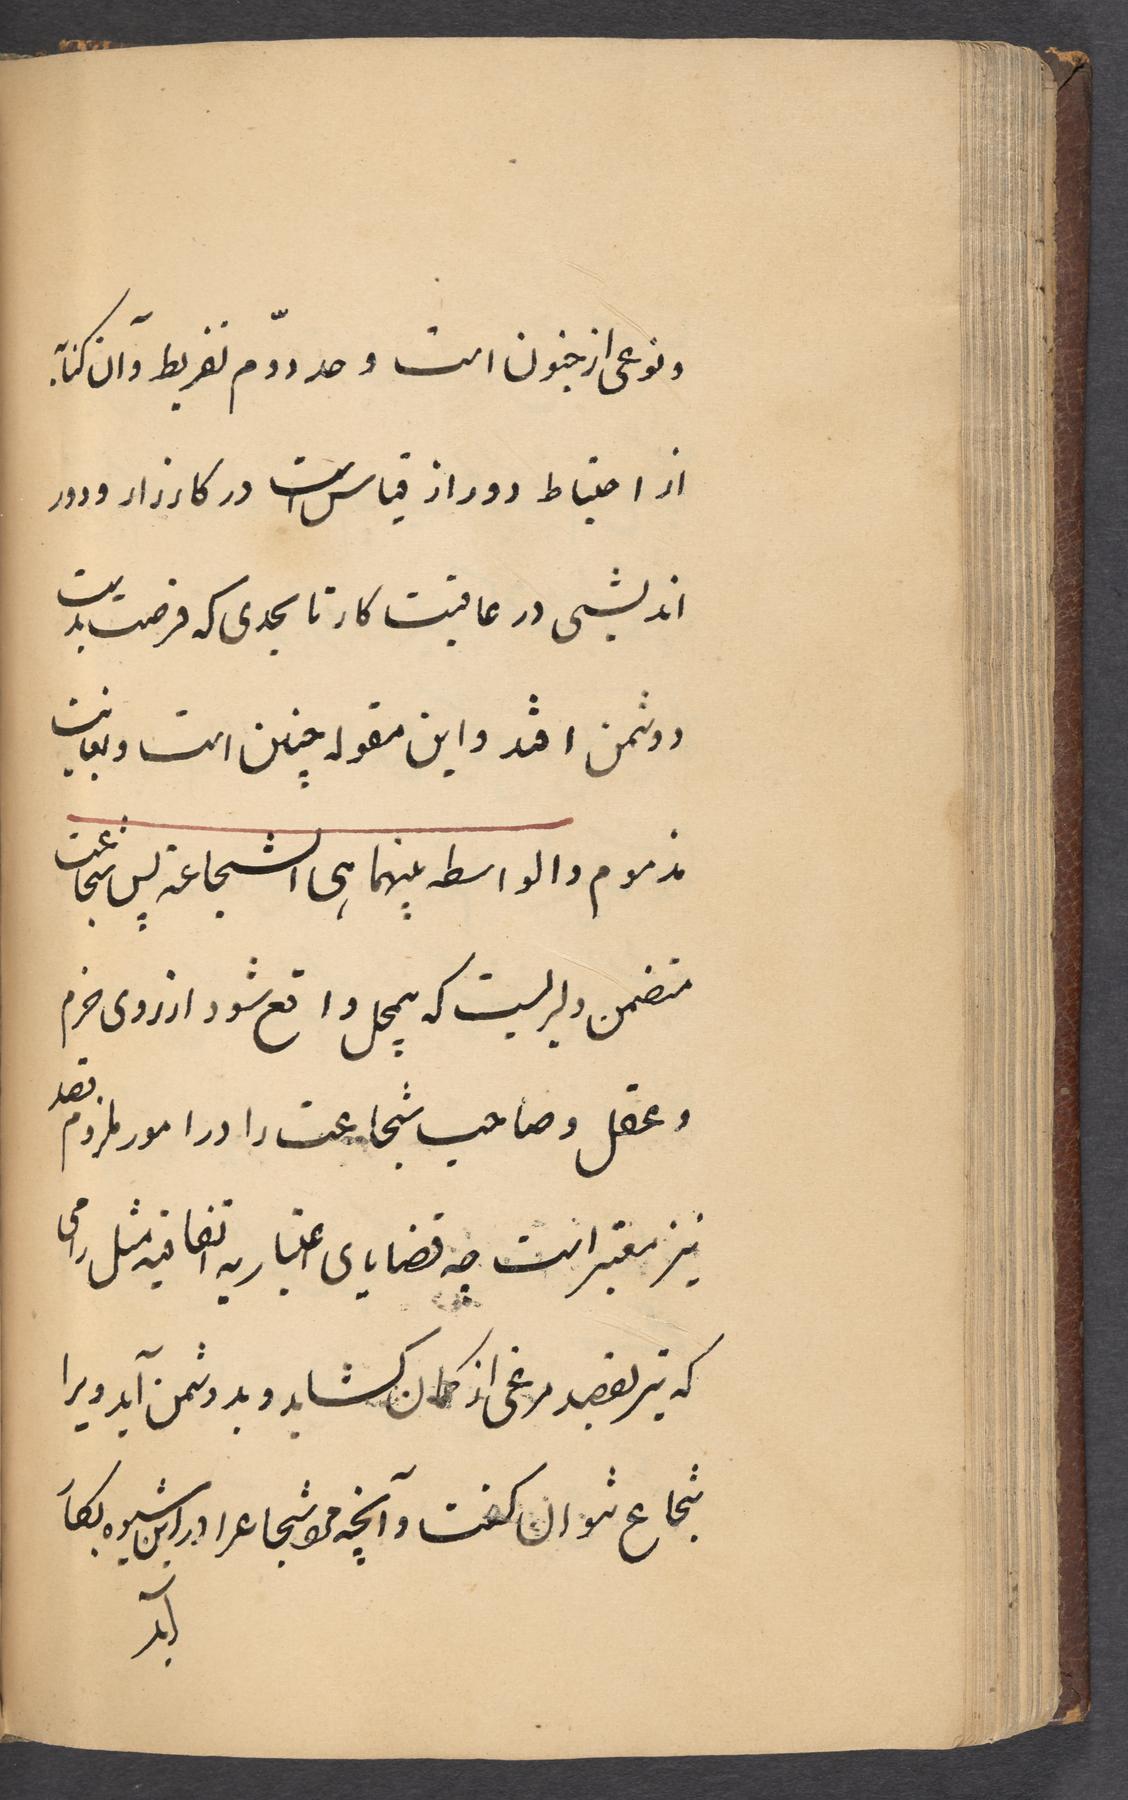 و نوعی از جنون است و حد دوّم تفریط و آن کنایه
از احتیاط دور از قیاس است در کارزار و دور
اندیشی در عاقبت کار تا بحدی که فرصت بدست
دوشمن افتد و این مقوله چنین است و بغایت
مذموم و الواسطه بینهما هی الشجاعة پس شجاعت
متضمن دلیریست که بمحل واقع شود از روی حزم
و عقل و صاحب شجاعت را در امور ملزوم قصد
نیز معتبر است چه قضایای اعتباریه اتفاقیه مثل رامی
که تیر بقصد مرغی از کمان کشاید و بدوشمن آید ویرا
شجاع نتوان کفت و آنچه مر شجاعرا در این شیوه بکار
آید